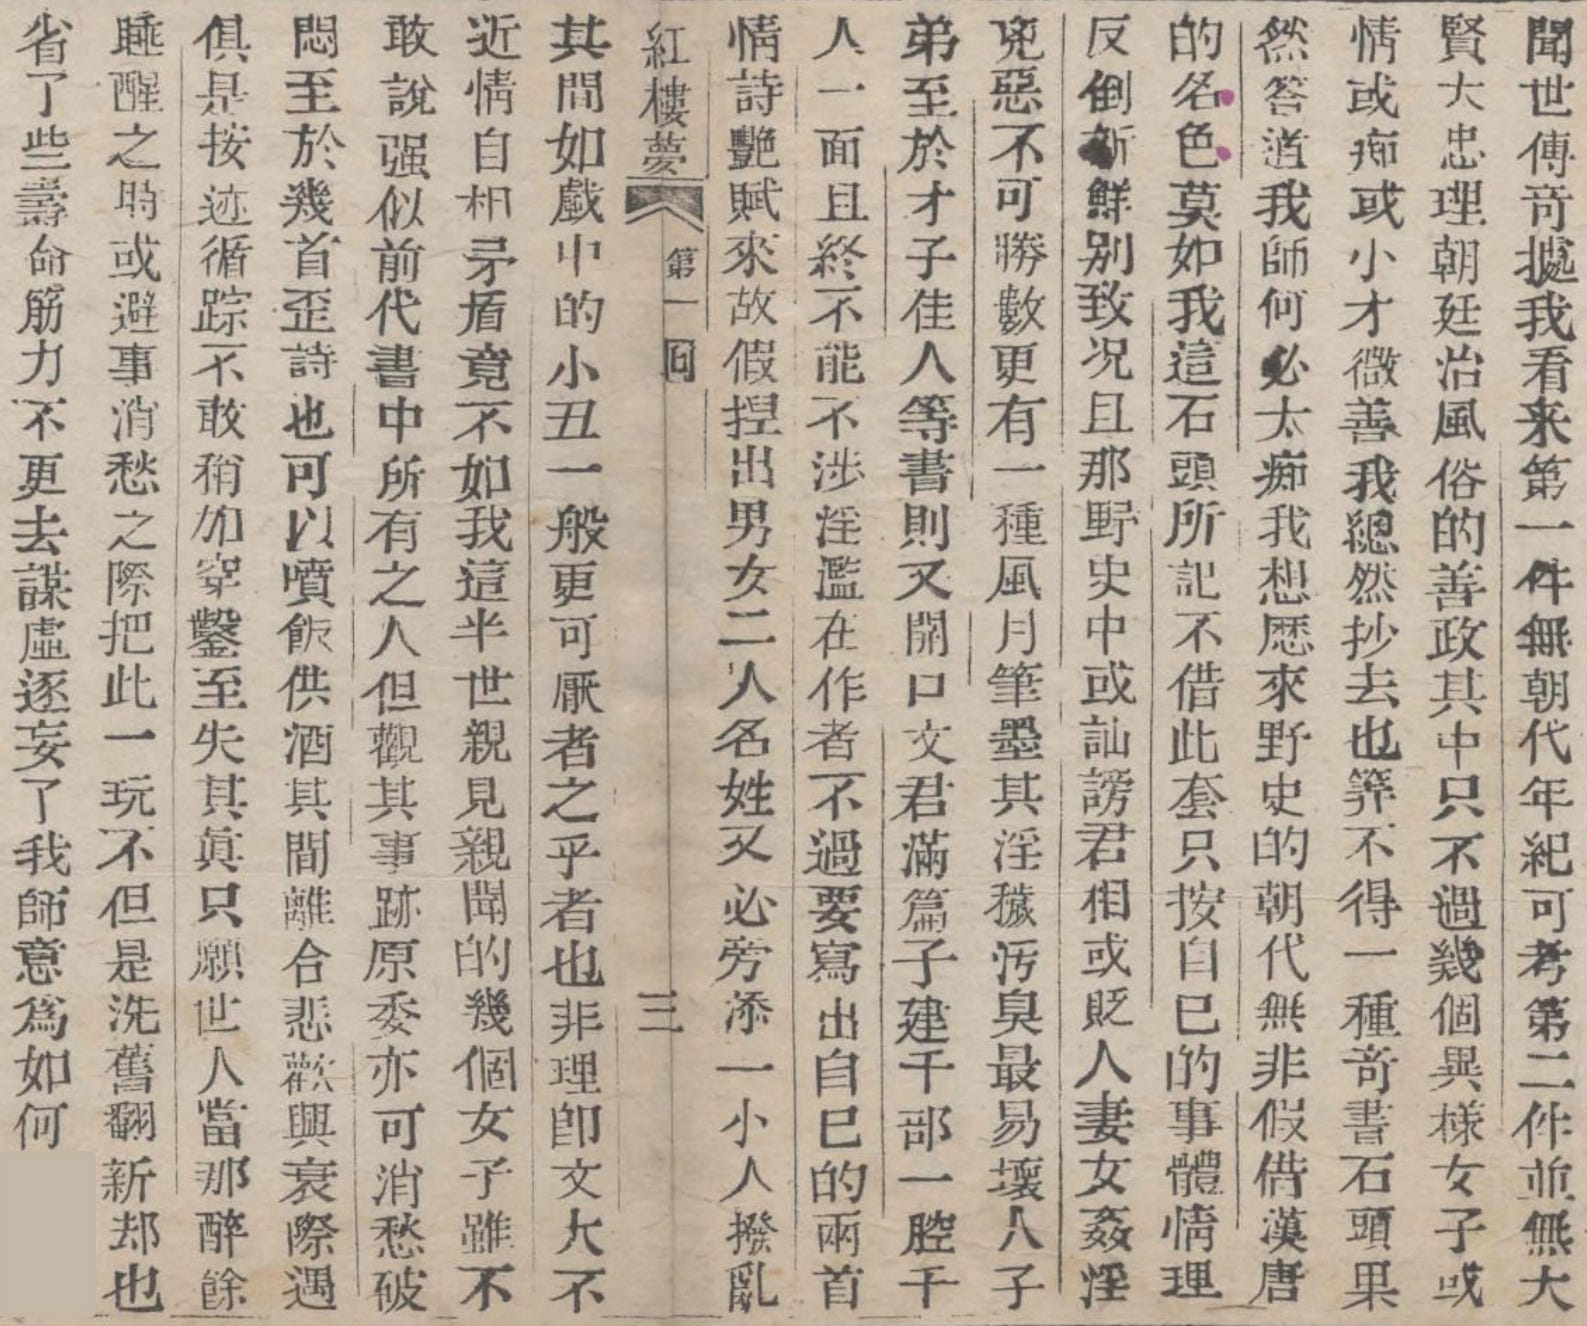 聞世傳奇據我看来第一件無朝代年紀可考第二件並無大
賢大忠理朝廷治風俗的善政其中只不過幾個異樣女子或
情或痴或小才微善我總然抄去也算不得一種奇書石頭果
然答道我師何必太痴我想歷來野史的朝代無非假借漢唐
的名色莫如我這石頭所記不借此套只按自已的事體情理
反倒新鮮别致况且那野史中或訕謗君相或貶人妻女姦淫
兇惡不可勝數更有一種風月筆墨其淫穢汚臭最易壞人子
弟至於才子佳人等書則又開口文君滿篇子建千部一腔千
人一面且終不能不涉淫濫在作者不過要寫出自已的兩首
情詩艷賦來故假捏出男女二人名姓又必旁添一小人撥亂
紅樓夢 第一回 三
其間如戲中的小丑一般更可厭者之乎者也非理卽文大不
近情自相矛盾竟不如我這半世親見親聞的幾個女子雖不
敢說强似前代書中所有之人但觀其事跡原委亦可消愁破
悶至於幾首歪詩也可以噴飯供酒其間離合悲歡興衰際遇
俱是按迹循踪不敢稍加穿鑿至失其眞只願世人當那醉餘
睡醒之時或避事消愁之際把此一玩不但是洗舊翻新却也
省了些壽命筋力不更去謀虛逐妄了我師意爲如何